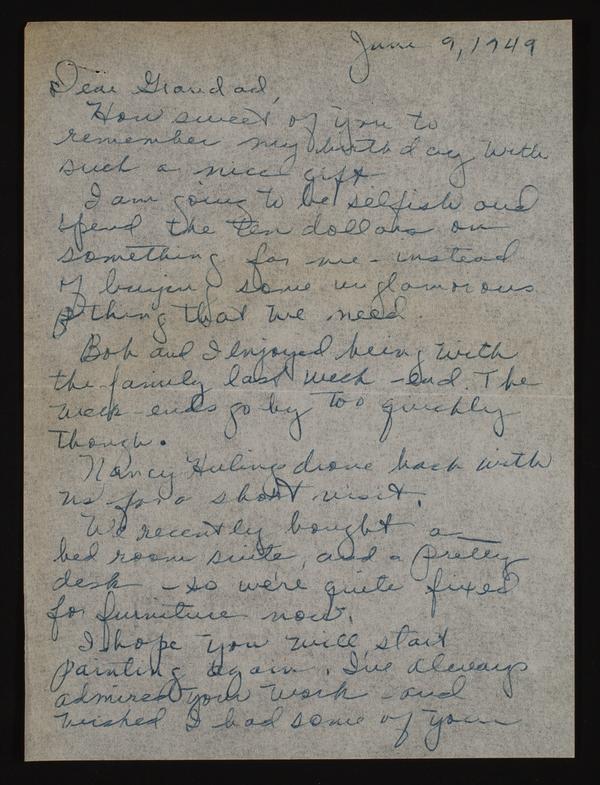 June 9, 1949
Dear Grandad,
How sweet of you to
remember my birthday with
such a nice gift
I am going to be selfish and
spend the ten dollars on
something for me - instead
of buying some unglamorous
thing that we need.
Bob and I enjoyed being with
the family last week-end. The
week-ends go by too quickly
though.
Nancy Huling drove back with
us for a short visit.
We recently bought a
bed room suite, and a pretty
desk - so we're quite fixed
for furniture now.
I hope you will start
painting again. I've always
admired your work - and
wished I had some of your